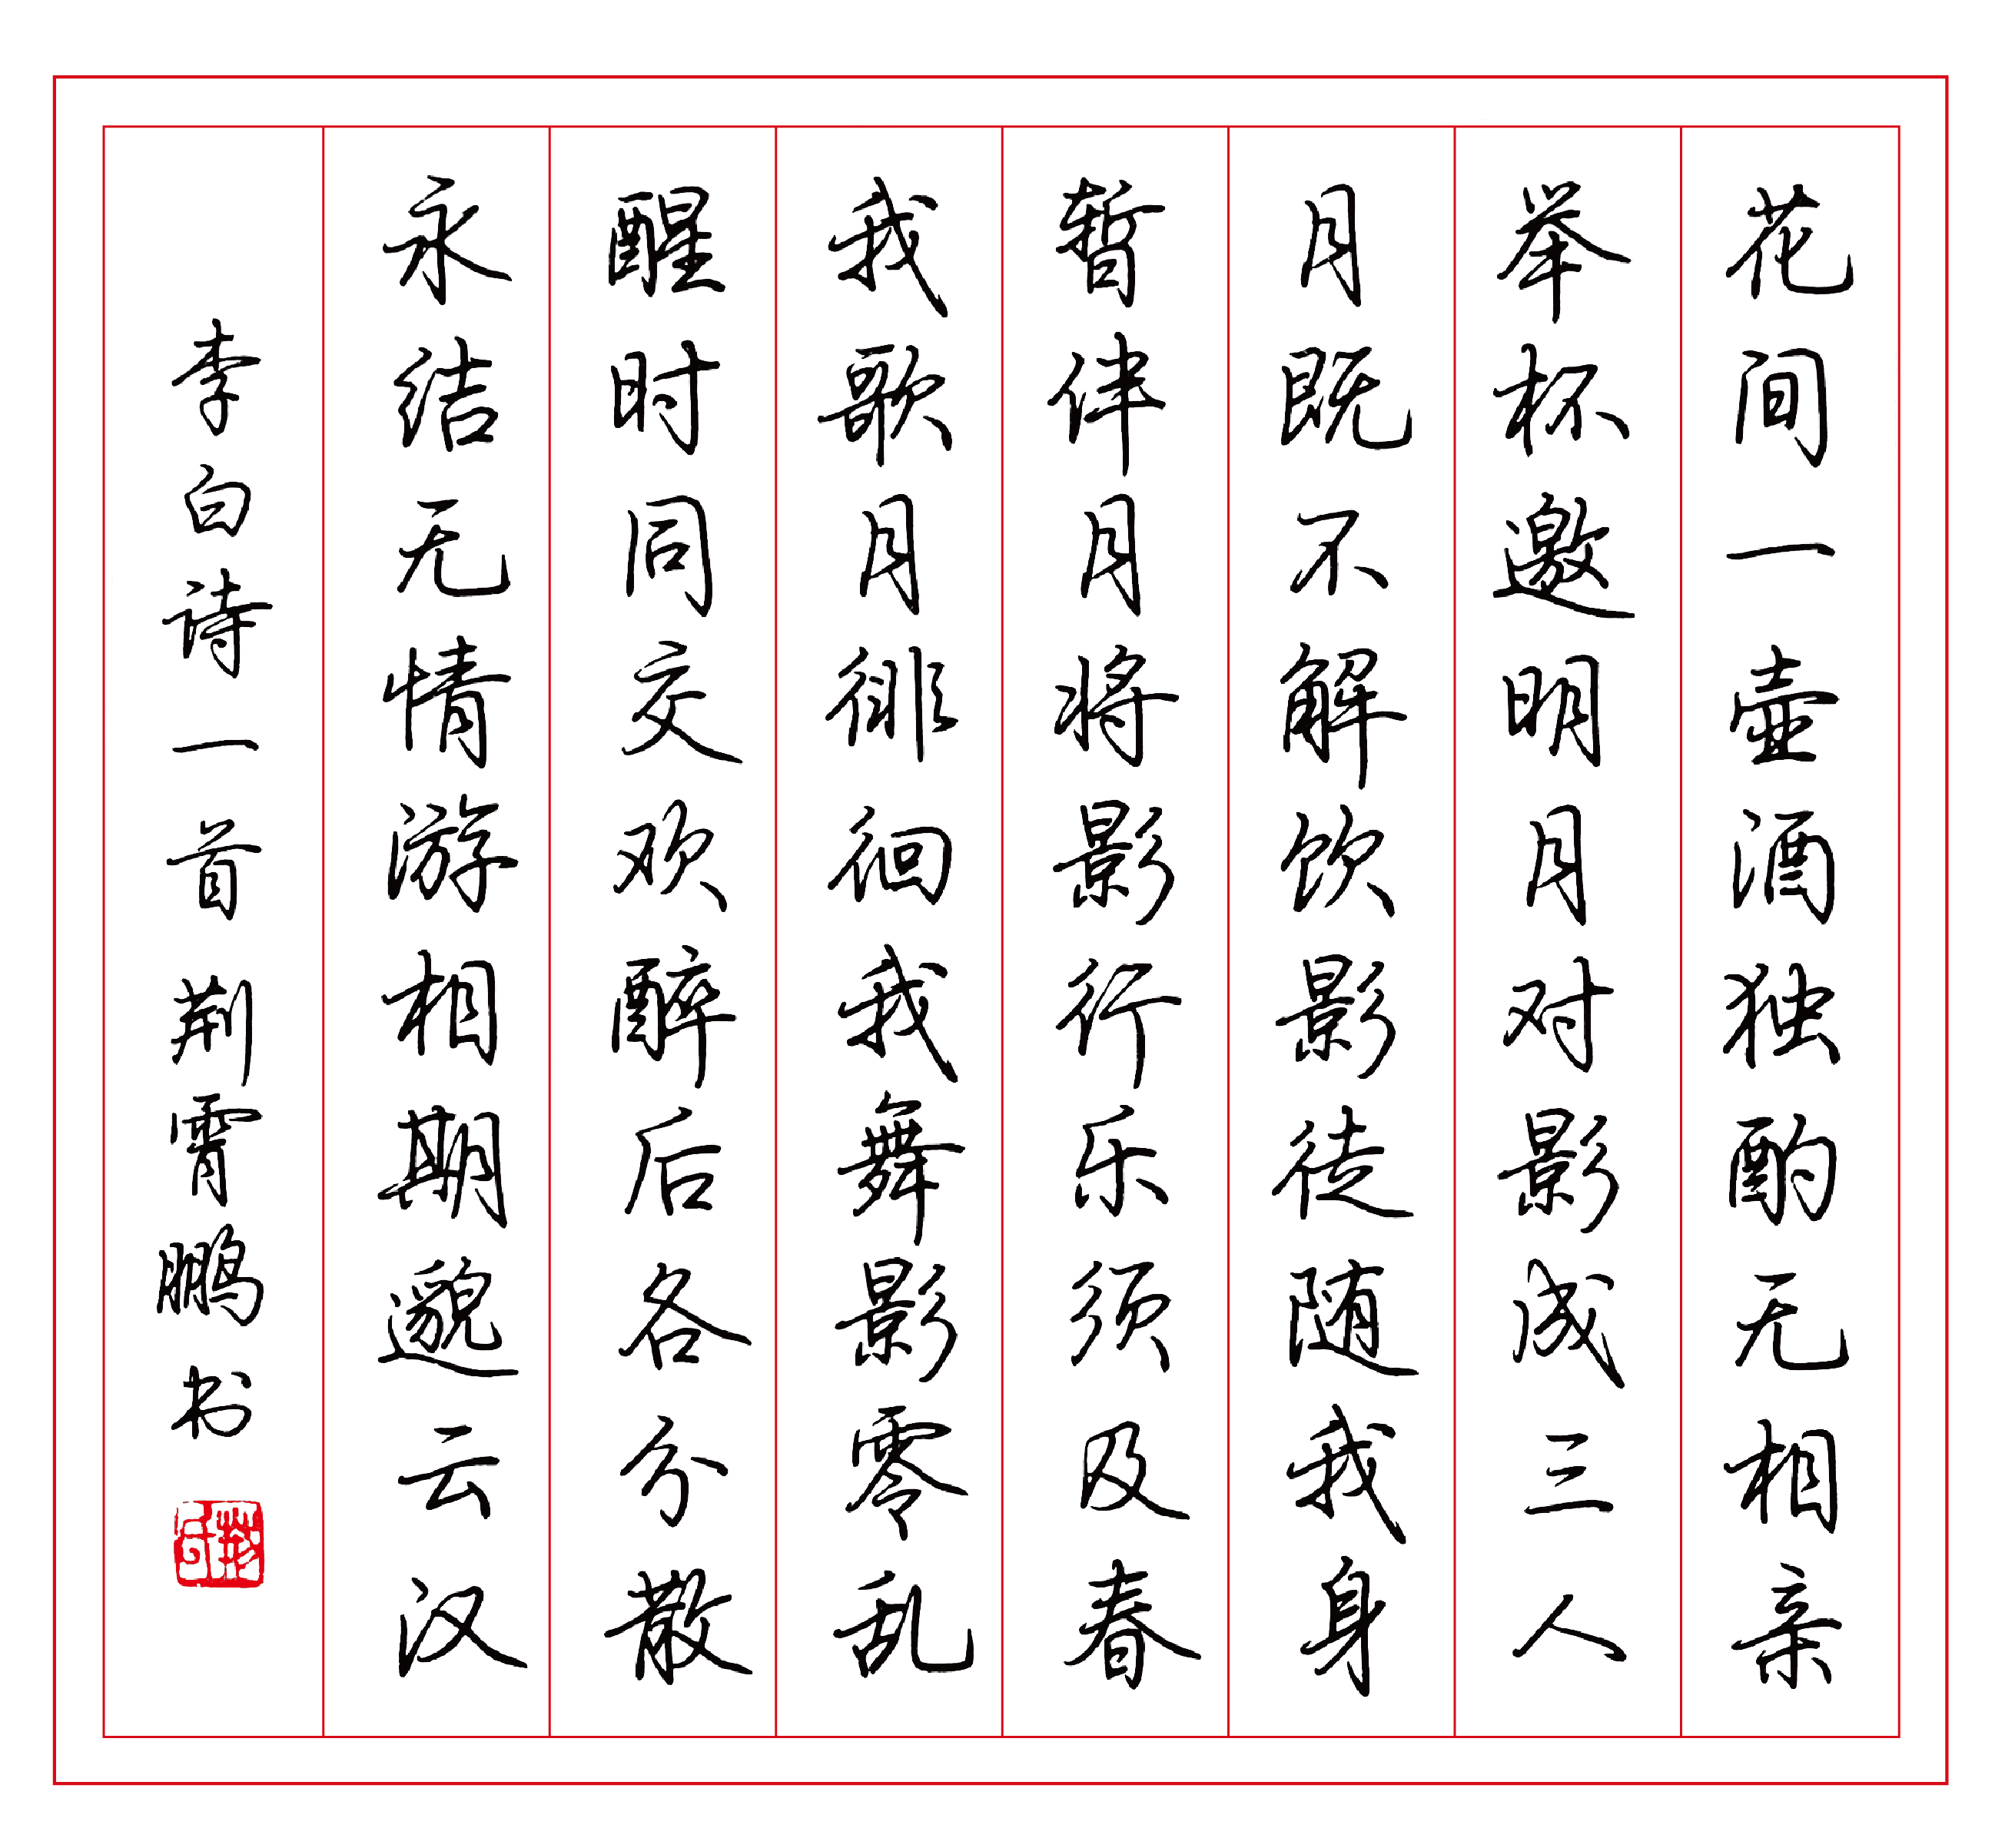 花间一壶酒独酌无相亲
举杯邀明月对影成三人
月既不解饮影徒随我身
暂伴月将影行乐须及春
我歌月徘徊我舞影零乱
醒时同交欢醉后各分散
永结无情游相期邈云汉
李白诗一首荆霄鹏书